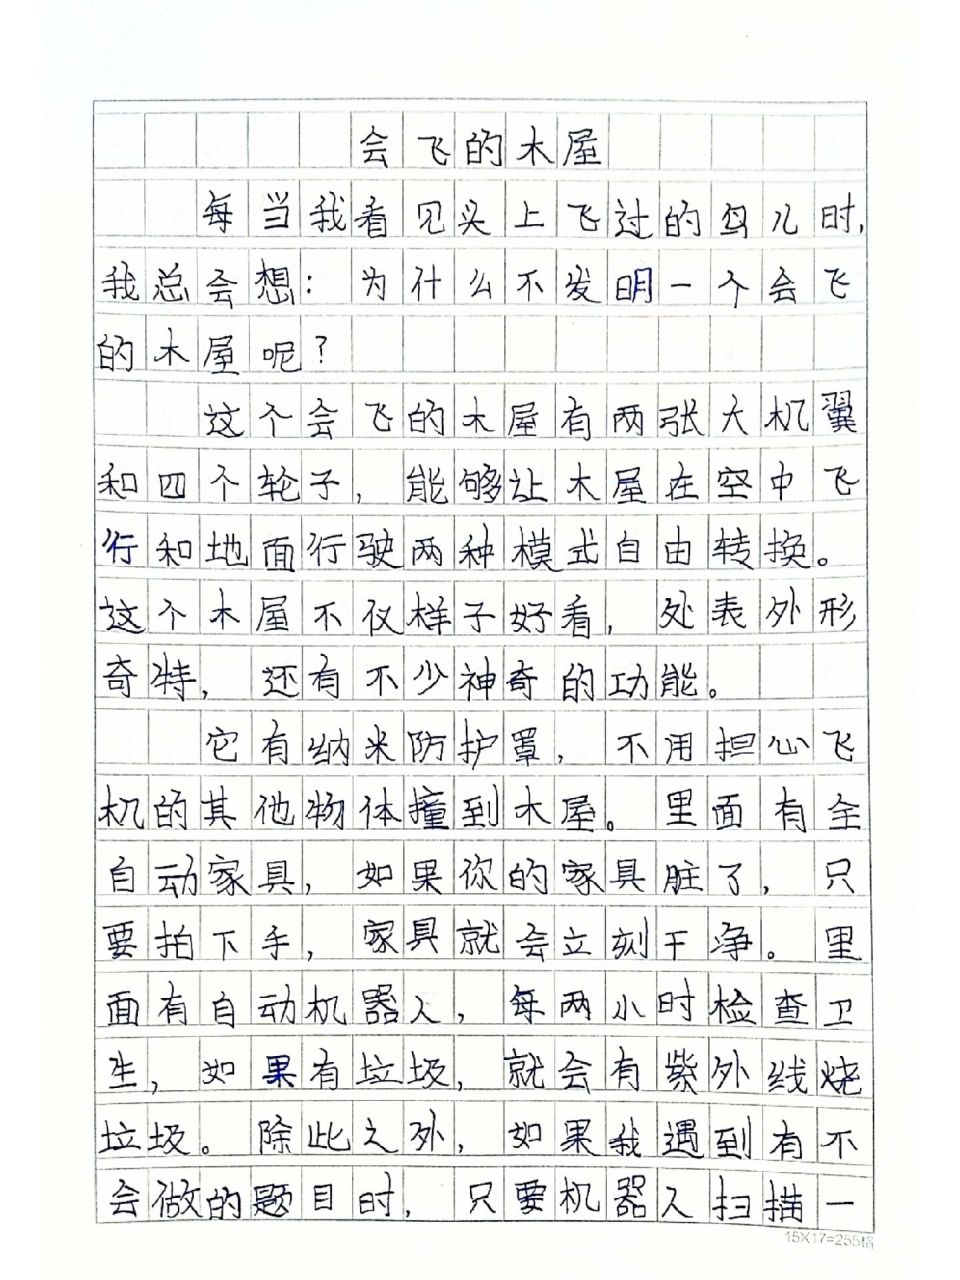 会飞的木屋
每当我看见头上飞过的鸟儿时,
我总会想：为什么不发明一个会飞
的木屋呢？
这个会飞的木屋有两张大机翼
和四个轮子，能够让木屋在空中飞
行和地面行驶两种模式自由转换。
这个木屋不仅样子好看，处表外形
奇特，还有不少神奇的功能。
它有纳米防护罩，不用担心飞
机的其他物体撞到木屋。里面有全
自动家具，如果你的家具脏了，只
要拍下手，家具就会立刻干净。里
面有自动机器人，每两小时检查卫
生，如果有垃圾，就会有紫外线烧
垃圾。除此之外，如果我遇到有不
会做的题目时，只要机器人扫描一
15X17=255格